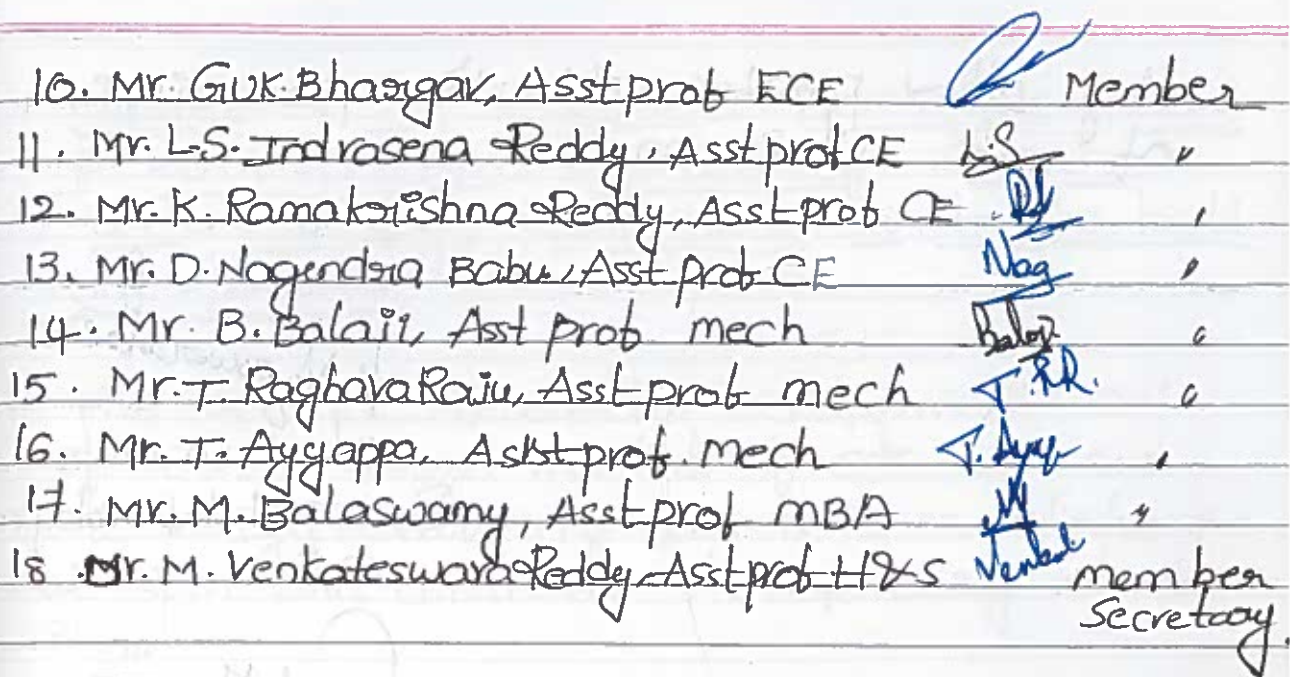 10. Mr. GVK. Bhargav, Asst prof ECE Member
11. Mr. L.S. Indrasena Reddy, Asst prof CE L.S "
12. Mr. K. Ramakrishna Reddy, Asst prof CE "
13. Mr. D. Nagendra Babu, Asst prof CE Nag "
14. Mr. B. Balaji, Asst prof mech Balaji "
15. Mr. T. Raghava Raju, Asst prof mech T.R.R. "
16. Mr. T. Ayyappa, Asst prof. mech T. Ayy "
17. Mr. M. Balaswamy, Asst prof MBA M "
18. Mr. M. Venkateswara Reddy, Asst prof H&S Venkat member
Secretary.